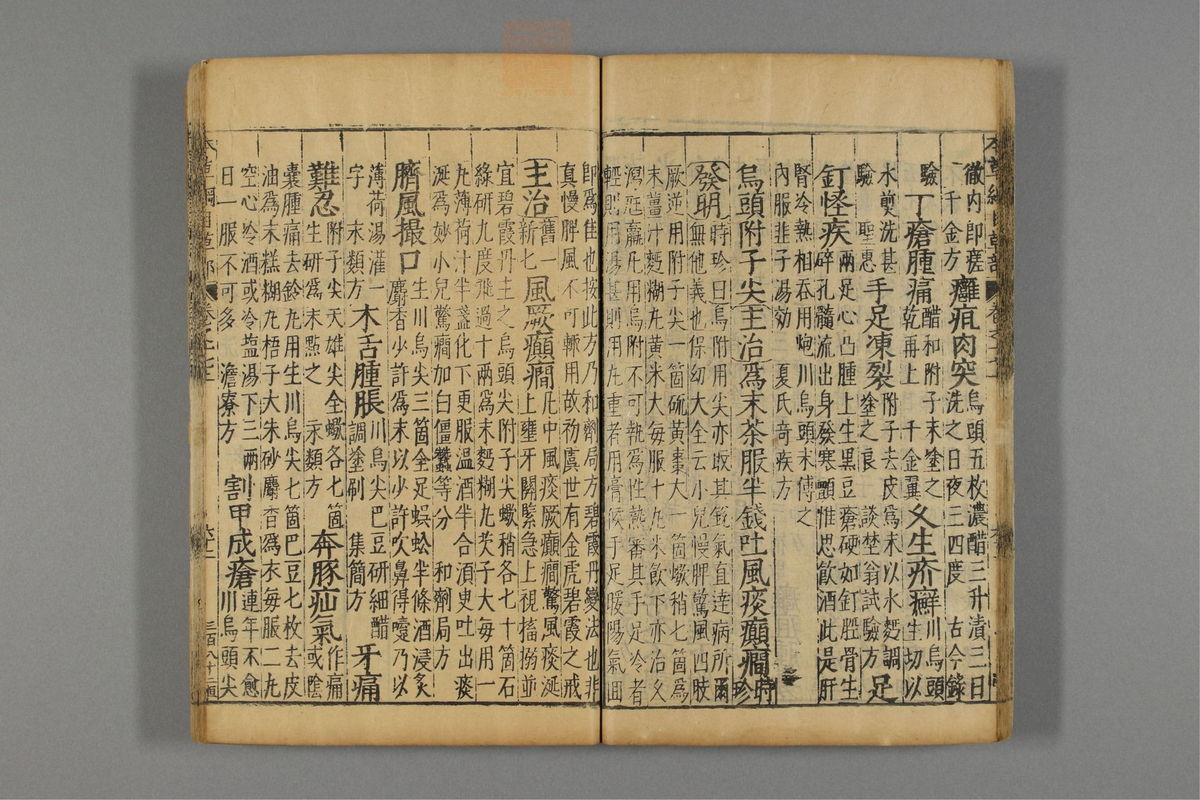 徹內即瘥千金方 癰疽肉突 烏頭五枚濃醋三升漬三日洗之日夜三四度 古今錄
驗 丁瘡腫痛 醋和附子末塗之乾再上 千金翼 久生疥癬 川烏頭生切以
水煎洗甚驗 聖惠 手足凍裂 附子去皮爲末以水麪調塗之良 談埜翁試驗方 足
釘怪疾 兩足心凸腫上生黑豆瘡硬如釘脛骨生碎孔髓流出身發寒顫惟思飲酒此是肝
腎冷熱相吞用炮川烏頭末傅之內服韭子湯効 夏氏奇疾方
烏頭附子尖 主治 爲末茶服半錢吐風痰癲癇 時珍
發明 時珍曰烏附用尖亦取其銳氣直達病所爾無他義也保幼大全云小兒慢脾驚風四肢
厥逆用附子尖一箇硫黃棗大一箇蠍稍七箇爲末薑汁麪糊丸黃米大每服十丸米飲下亦治久
瀉尫羸凡用烏附不可執爲性熱審其手足冷者輕則用湯甚則用丸重者用膏候手足暖陽氣回
即爲佳也按此方乃和劑局方碧霞丹變法也非真慢脾風不可輒用故初虞世有金虎碧霞之戒
主治 舊一新七 風厥癲癇 凡中風痰厥癲癇驚風痰涎上壅牙關緊急上視搐搦並
宜碧霞丹主之烏頭尖附子尖蠍稍各七十箇石綠研九度飛過十兩爲末麪糊丸芡子大每用一
丸薄荷汁半盞化下更服溫酒半合須臾吐出痰涎爲妙小兒驚癇加白僵蠶等分 和劑局方
臍風撮口 生川烏尖三箇全足蜈蚣半條酒浸炙麝香少許爲末以少許吹鼻得嚏乃以
薄荷湯灌一字 永類方 木舌腫脹 川烏尖巴豆研細醋調塗刷 集簡方 牙痛
難忍 附子尖天雄尖全蠍各七箇生研爲末點之 永類方 奔豚疝氣 作痛或陰
囊腫痛去鈴丸用生川烏尖七箇巴豆七枚去皮油爲末糕糊丸梧子大朱砂麝香爲衣每服二丸
空心冷酒或冷盐湯下三兩日一服不可多 澹寮方 割甲成瘡 連年不愈川烏頭尖